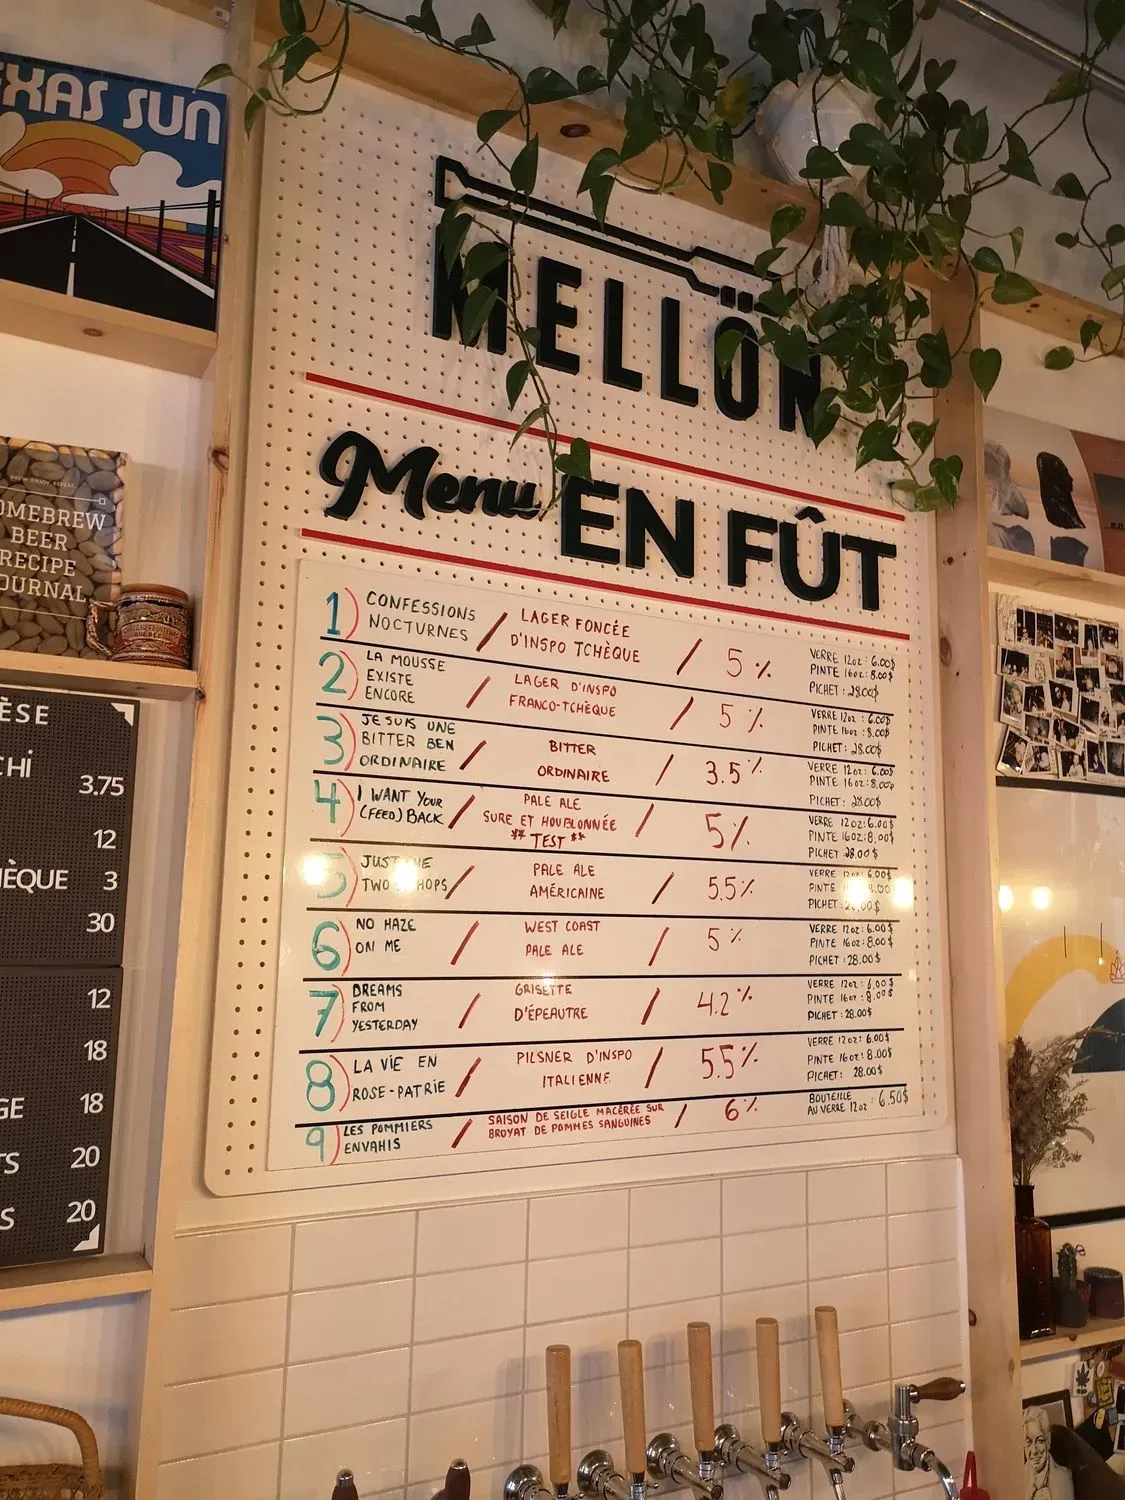 TEXAS SUN
BREW. ENJOY. REPEAT.
HOMEBREW
BEER
RECIPE
JOURNAL
3.75
12
3
30
12
18
18
20
20
MELLÖN
Menu EN FÛT
1) CONFESSIONS
NOCTURNES / LAGER FONCÉE
D'INSPO TCHÈQUE / 5% VERRE 12oz : 6.00$
PINTE 16oz : 8.00$
PICHET : 28.00$
2) LA MOUSSE
EXISTE
ENCORE / LAGER D'INSPO
FRANCO-TCHÈQUE / 5% VERRE 12oz : 6.00$
PINTE 16oz : 8.00$
PICHET : 28.00$
3) JE SUIS UNE
BITTER BEN
ORDINAIRE / BITTER
ORDINAIRE / 3.5% VERRE 12oz : 6.00$
PINTE 16oz : 8.00$
PICHET : 28.00$
4) I WANT YOUR
(FEED) BACK / PALE ALE
SURE ET HOUBLONNÉE
** TEST ** / 5% VERRE 12oz : 6.00$
PINTE 16oz : 8.00$
PICHET 28.00$
5) JUST
TWO HOPS / PALE ALE
AMÉRICAINE / 5.5% VERRE 12oz : 6.00$
PINTE
PICHET :
6) NO HAZE
ON ME / WEST COAST
PALE ALE / 5% VERRE 12oz : 6.00$
PINTE 16oz : 8.00$
PICHET : 28.00$
7) DREAMS
FROM
YESTERDAY / GRISETTE
D'ÉPEAUTRE / 4.2% VERRE 12oz : 6.00$
PINTE 16oz : 8.00$
PICHET : 28.00$
8) LA VIE EN
ROSE-PATRIE / PILSNER D'INSPO
ITALIENNE / 5.5% VERRE 12oz : 6.00$
PINTE 16oz : 8.00$
PICHET : 28.00$
9) LES POMMIERS
ENVAHIS / SAISON DE SEIGLE MACÉRÉE SUR
BROYAT DE POMMES SANGUINES / 6% BOUTEILLE
AU VERRE 12oz : 6.50$